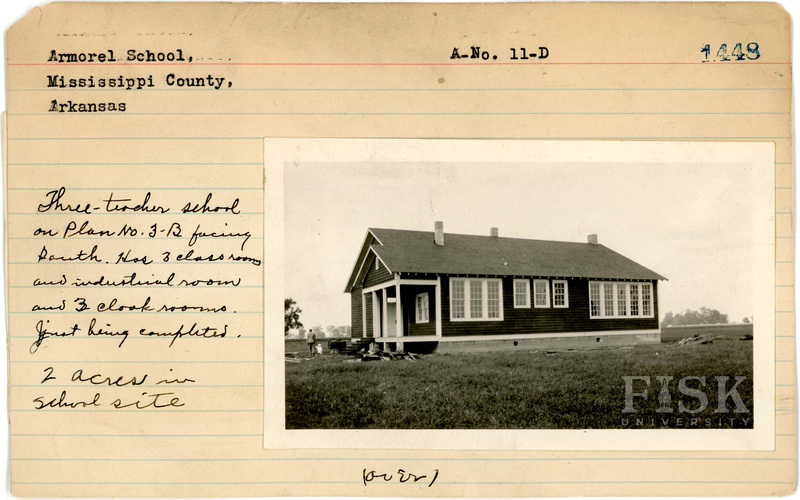 Armorel School,
Mississippi County,
Arkansas
A-No. 11-D
1448
Three-teacher school
on Plan No. 3-B facing
South. Has 3 classrooms
and industrial room
and 3 cloak rooms.
Just being completed.
2 acres in
School site
FISK
UNIVERSITY
(over)